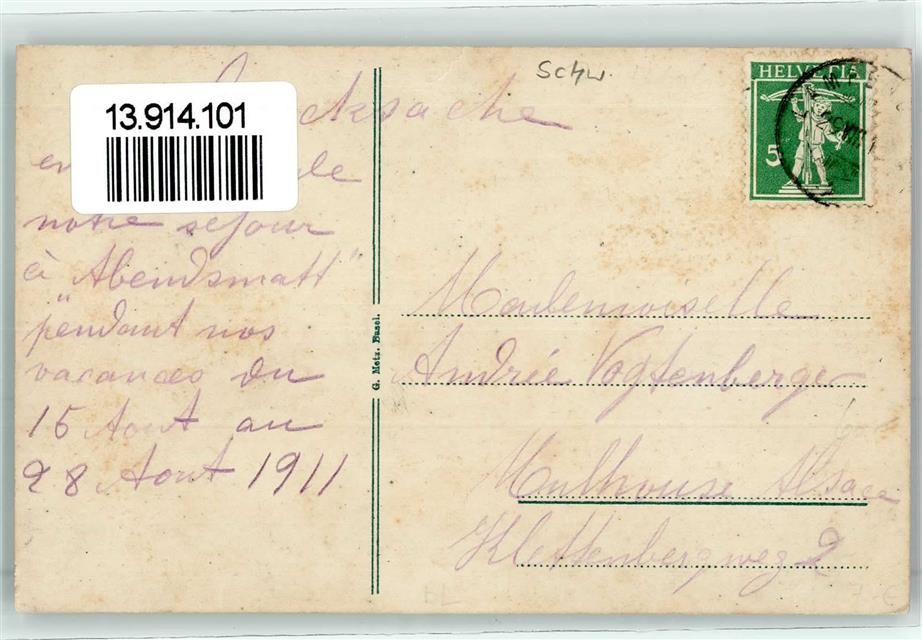 Schw.
HELVETIA
5
13.914.101
notre séjour
à "Abendsmatt"
pendant nos
vacances du
15 Aout au
28 Aout 1911
G. Metz. Basel.
Mademoiselle
Andrée Vogtenberger
Mulhouse Alsace
Klettenbergweg 2